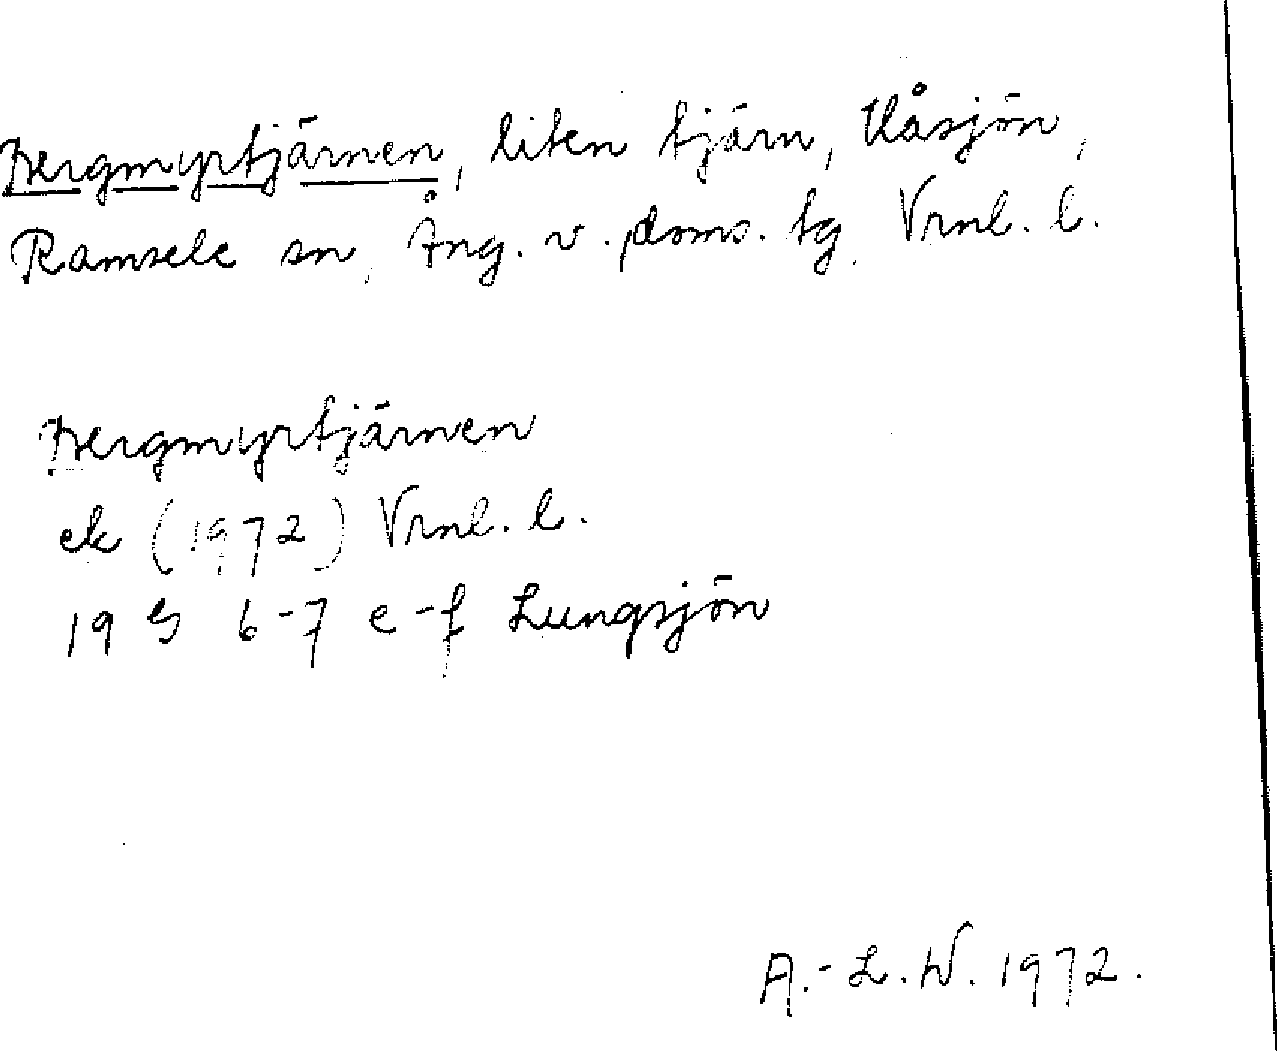 Bergmyrtjärnen, liten tjärn, Våsjön,
Ramsele sn, Ång. v. doms. tg Vrnl. l.
Bergmyrtjärnen
ek (1972) Vrnl. l.
19 G 6-7 e-f Lungsjön
A.-L.W. 1972.